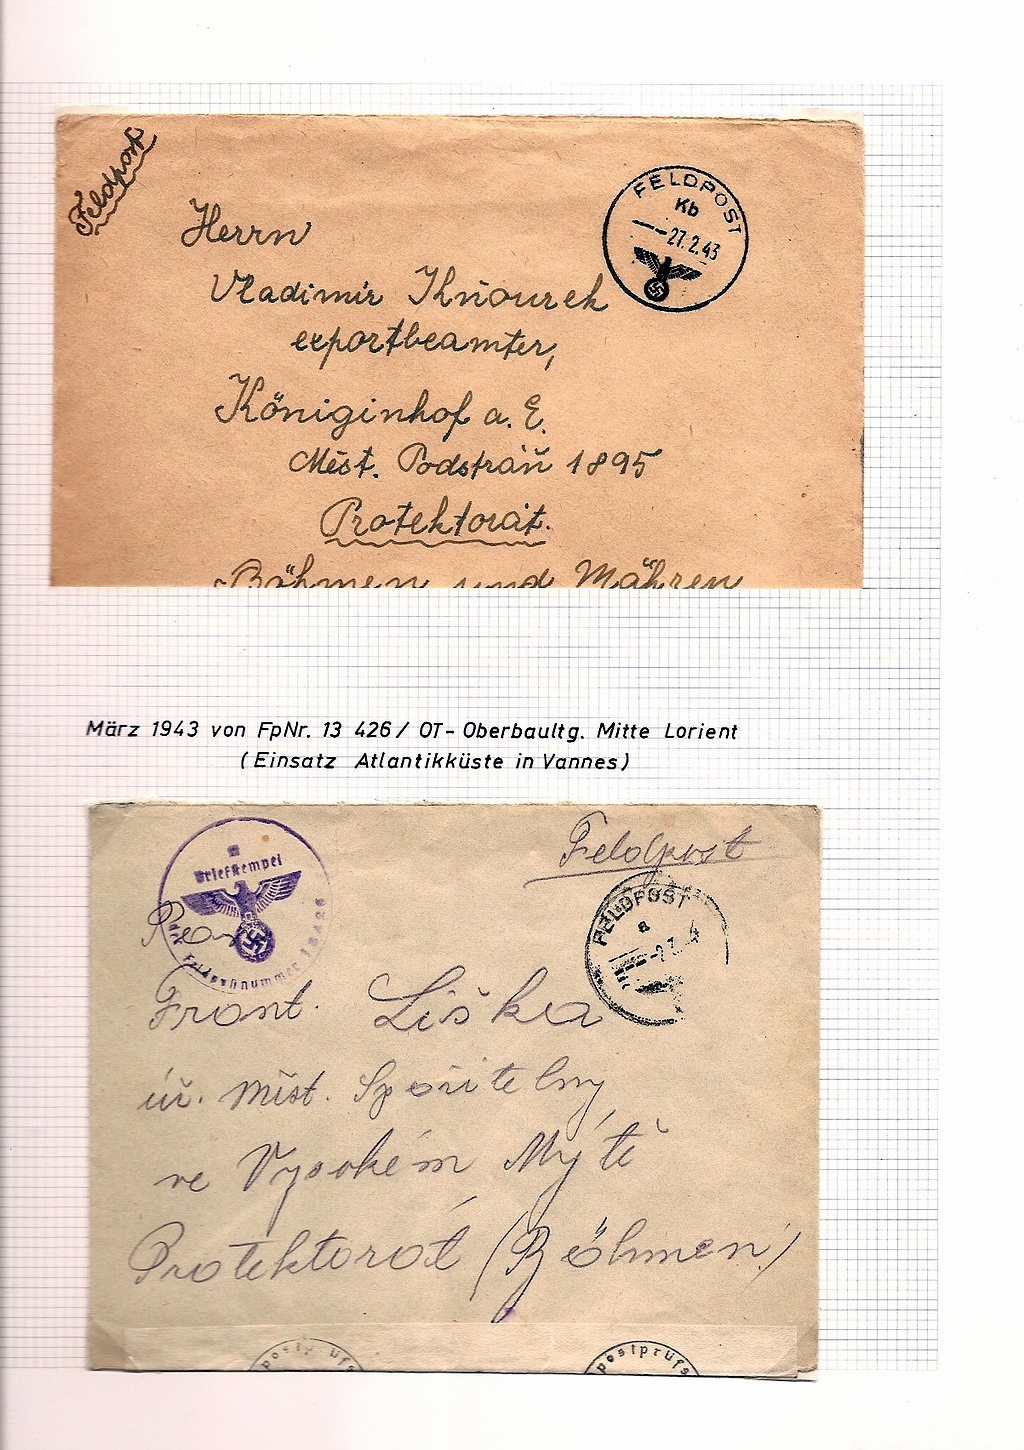 Feldpost
FELDPOST
Kb
-27.2.43
Herrn
Vladimir Kňourek
exportbeamter,
Königinhof a. E.
Měst. Podstráň 1895
Protektorat.
-Böhmen und Mähren
März 1943 von FpNr. 13 426/ OT-Oberbaultg. Mitte Lorient
(Einsatz Atlantikküste in Vannes)
Feldpost
Briefstempel
Feldpostnummer 13426
FELDPOST
a
Front. Liška
úř. Měst. Spořitelny
ve Vysokém Mýtě
Protektorát (Böhmen)
postprüfs